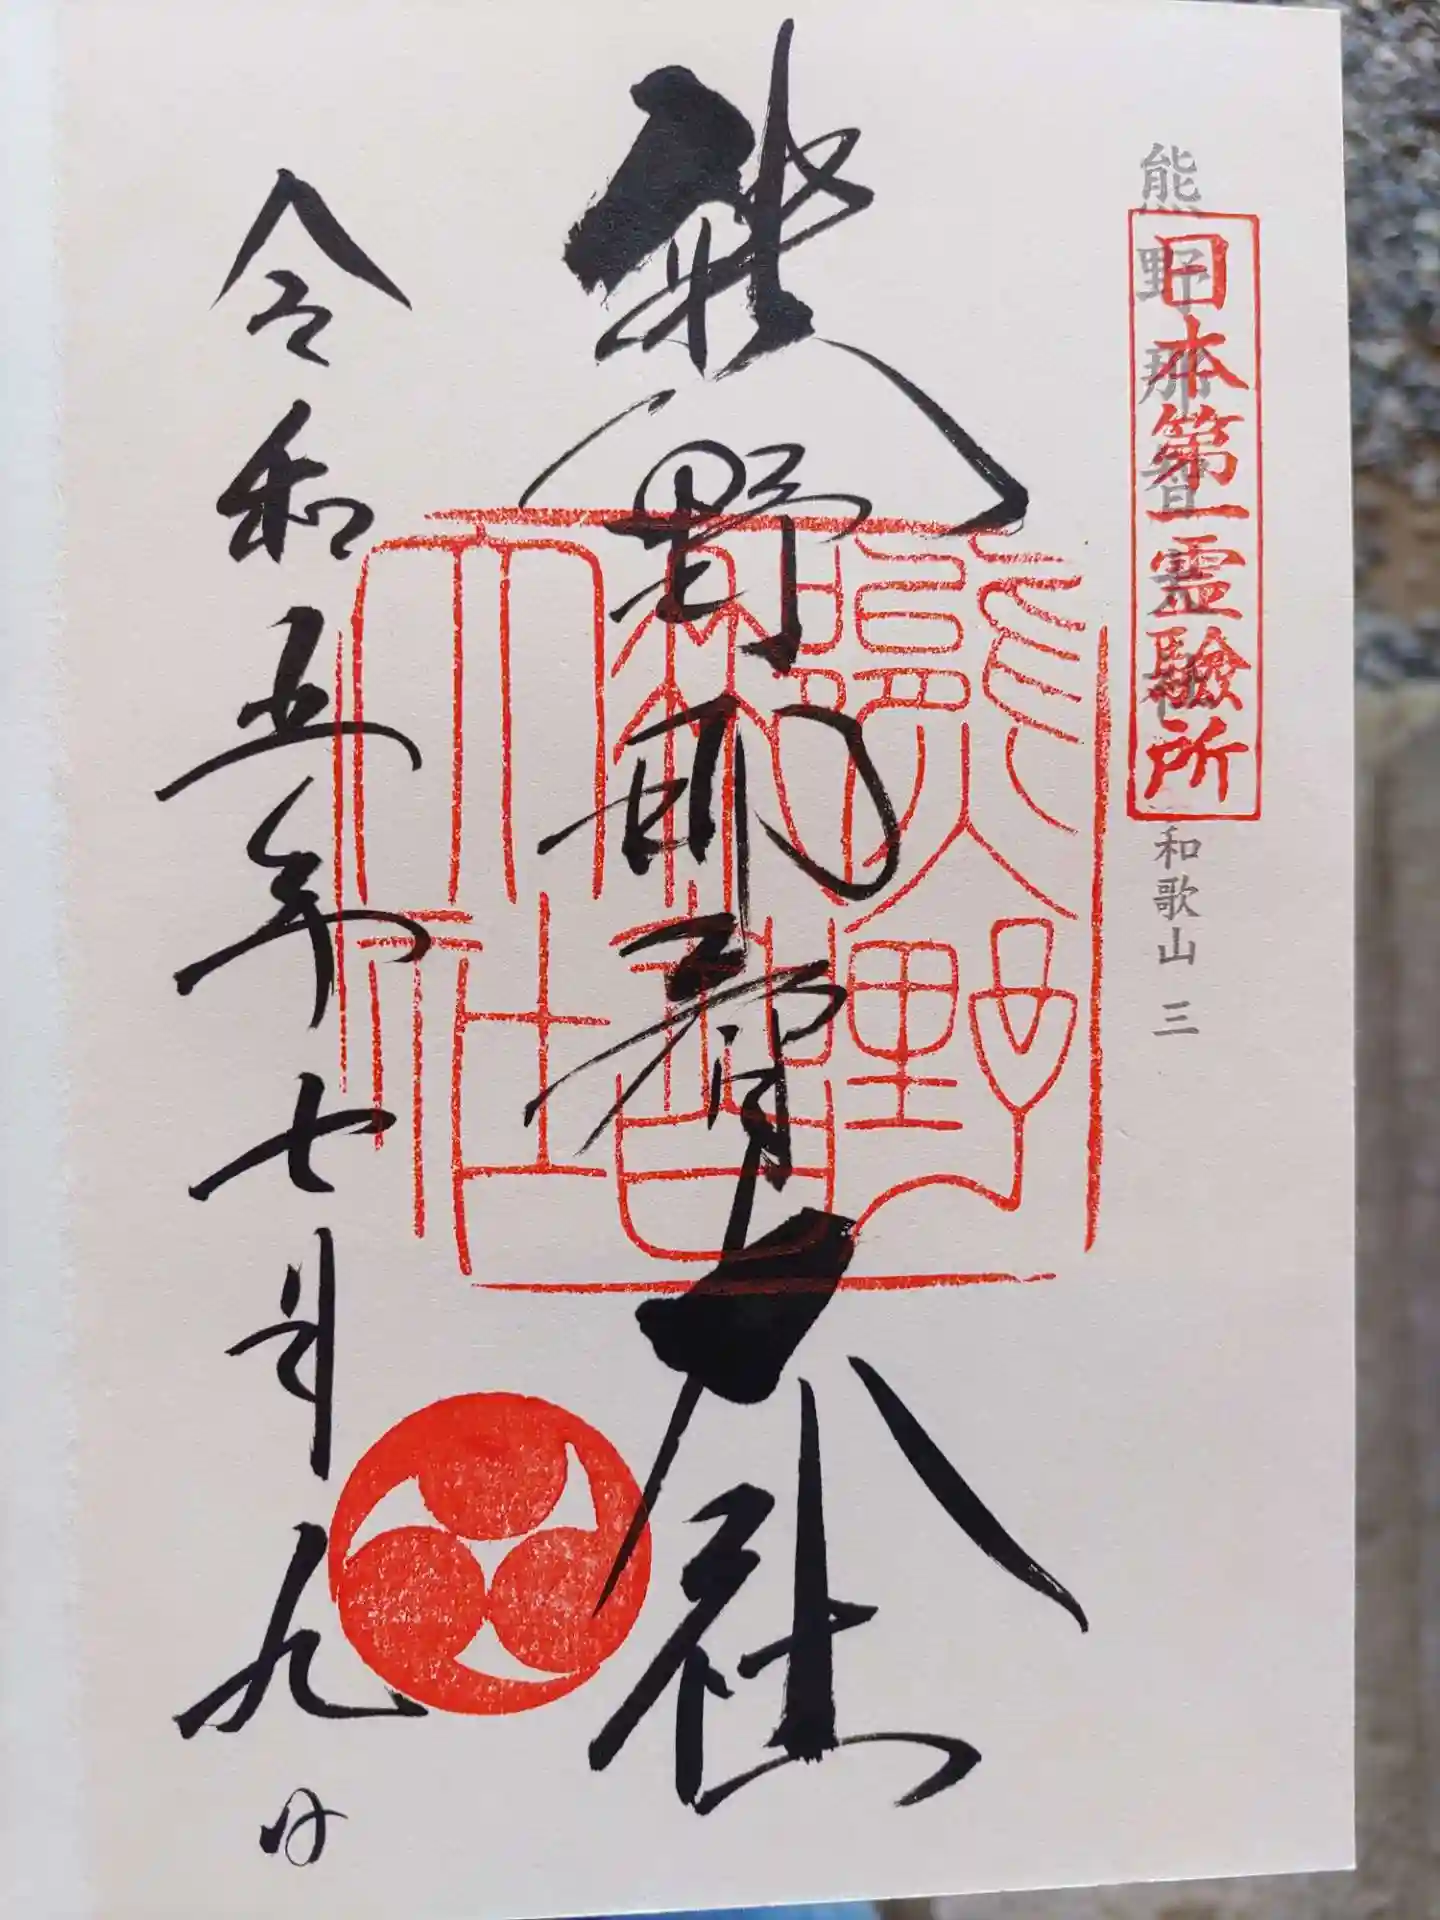 熊野那智大社
和歌山 三
日本第一霊験所
熊野那智大社
熊野那智大社
令和五年七月九日